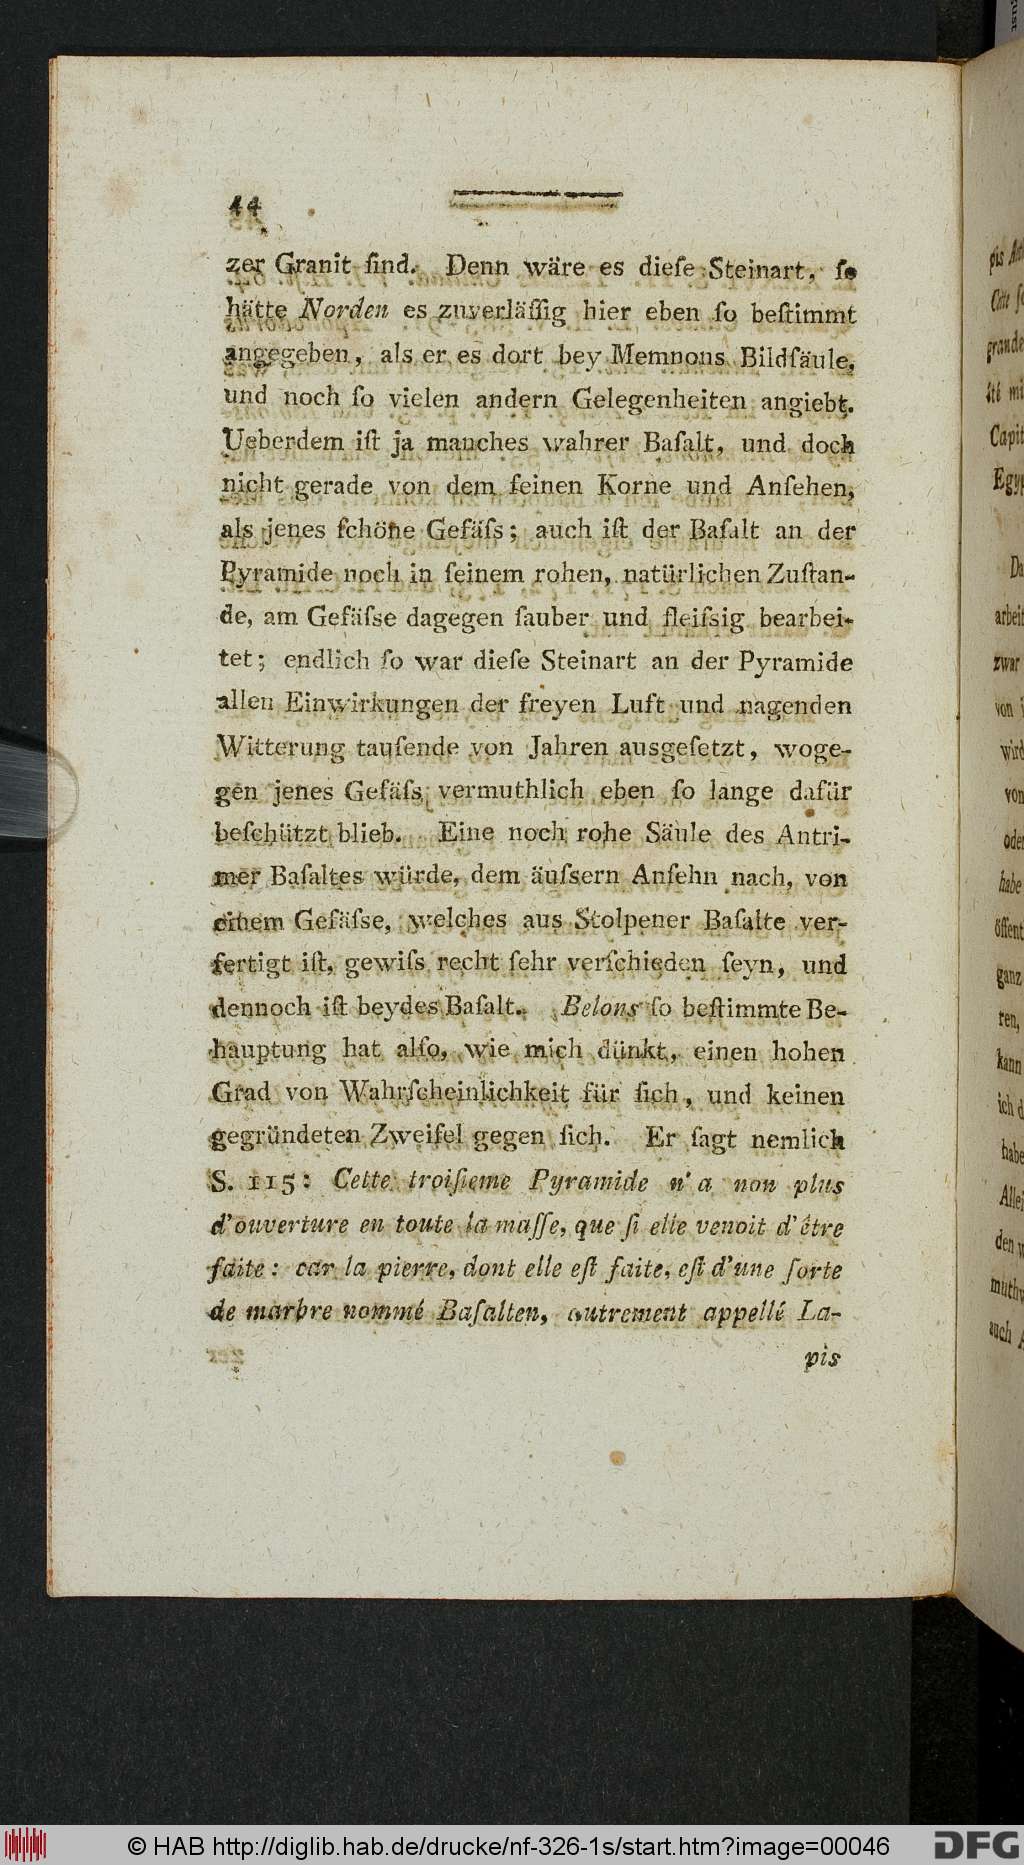 44
zer Granit ſind. Denn wäre es dieſe Steinart, ſo
hätte Norden es zuverläſſig hier eben ſo beſtimmt
angegeben, als er es dort bey Memnons Bildſäule,
und noch ſo vielen andern Gelegenheiten angiebt.
Ueberdem iſt ja manches wahrer Baſalt, und doch
nicht gerade von dem feinen Korne und Anſehen,
als jenes ſchöne Gefäſs; auch iſt der Baſalt an der
Pyramide noch in ſeinem rohen, natürlichen Zuſtan-
de, am Gefäſse dagegen ſauber und fleiſsig bearbei-
tet; endlich ſo war dieſe Steinart an der Pyramide
allen Einwirkungen der freyen Luft und nagenden
Witterung tauſende von Jahren ausgeſetzt, woge-
gen jenes Gefäſs vermuthlich eben ſo lange dafür
beſchützt blieb. Eine noch rohe Säule des Antri-
mer Baſaltes würde, dem äuſsern Anſehn nach, von
einem Gefäſse, welches aus Stolpener Baſalte ver-
fertigt iſt, gewiſs recht ſehr verſchieden ſeyn, und
dennoch iſt beydes Baſalt. Belons ſo beſtimmte Be-
hauptung hat alſo, wie mich dünkt, einen hohen
Grad von Wahrſcheinlichkeit für ſich, und keinen
gegründeten Zweifel gegen ſich. Er ſagt nemlich
S. 115: Cette troiſieme Pyramide n'a non plus
d'ouverture en toute la maſſe, que ſi elle venoit d'être
faite: car la pierre, dont elle eſt faite, eſt d'une ſorte
de marbre nommé Baſalten, autrement appellé La-
pis
grande
Capit
Egyp
arbeit
zwar
von
wird
von
oder
habe
öffent
ganz
ren,
kann
ich d
habe
Allei
den w
muthv
auch A
© HAB http://diglib.hab.de/drucke/nf-326-1s/start.htm?image=00046
DFG